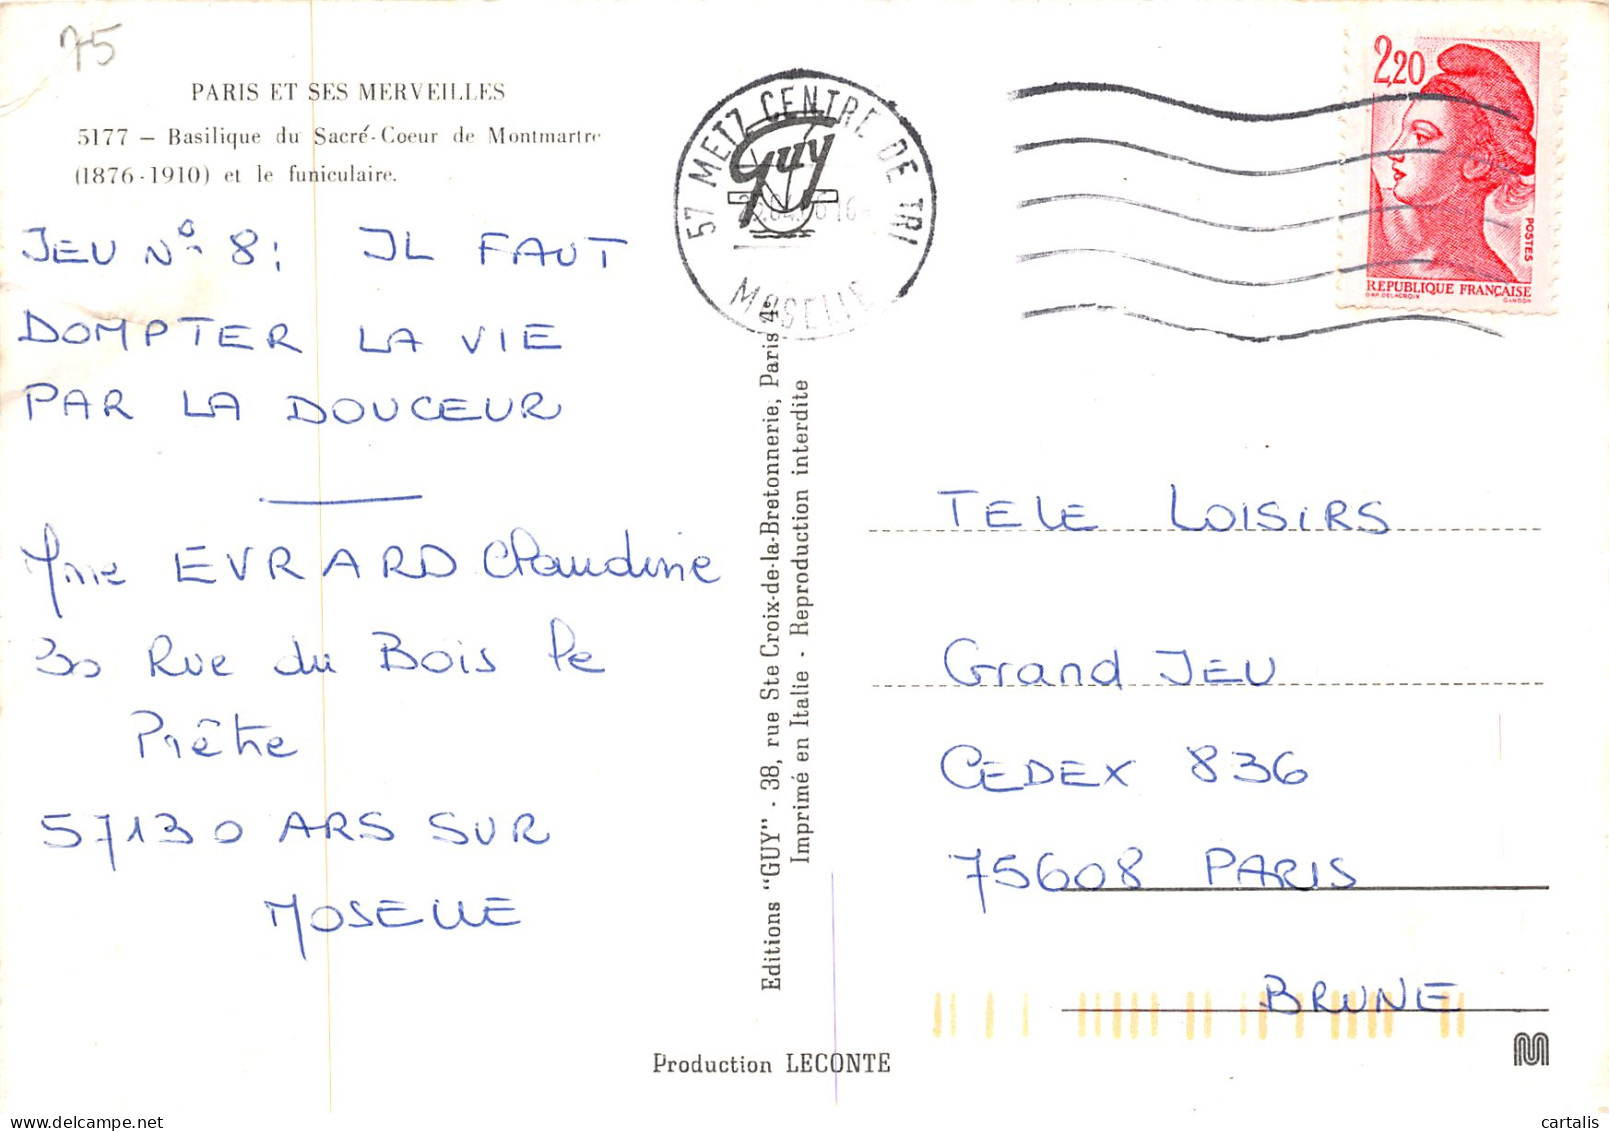 75
PARIS ET SES MERVEILLES
5177 — Basilique du Sacré-Coeur de Montmartre
(1876-1910) et le funiculaire.
JEU N° 8: IL FAUT
DOMPTER LA VIE
PAR LA DOUCEUR
Mme EVRARD Claudine
30 Rue du Bois le
Prêtre
57130 ARS SUR
MOSELLE
Guy
57 METZ CENTRE DE TRI
MOSELLE
Editions "GUY" - 38, rue Ste Croix-de-la-Bretonnerie, Paris 4e
Imprimé en Italie - Reproduction interdite
2,20
POSTES
REPUBLIQUE FRANÇAISE
D'AP. DELACROIX GANDON
TELE LOISIRS
Grand JEU
CEDEX 836
75608 PARIS
BRUNE
Production LECONTE
cartalis